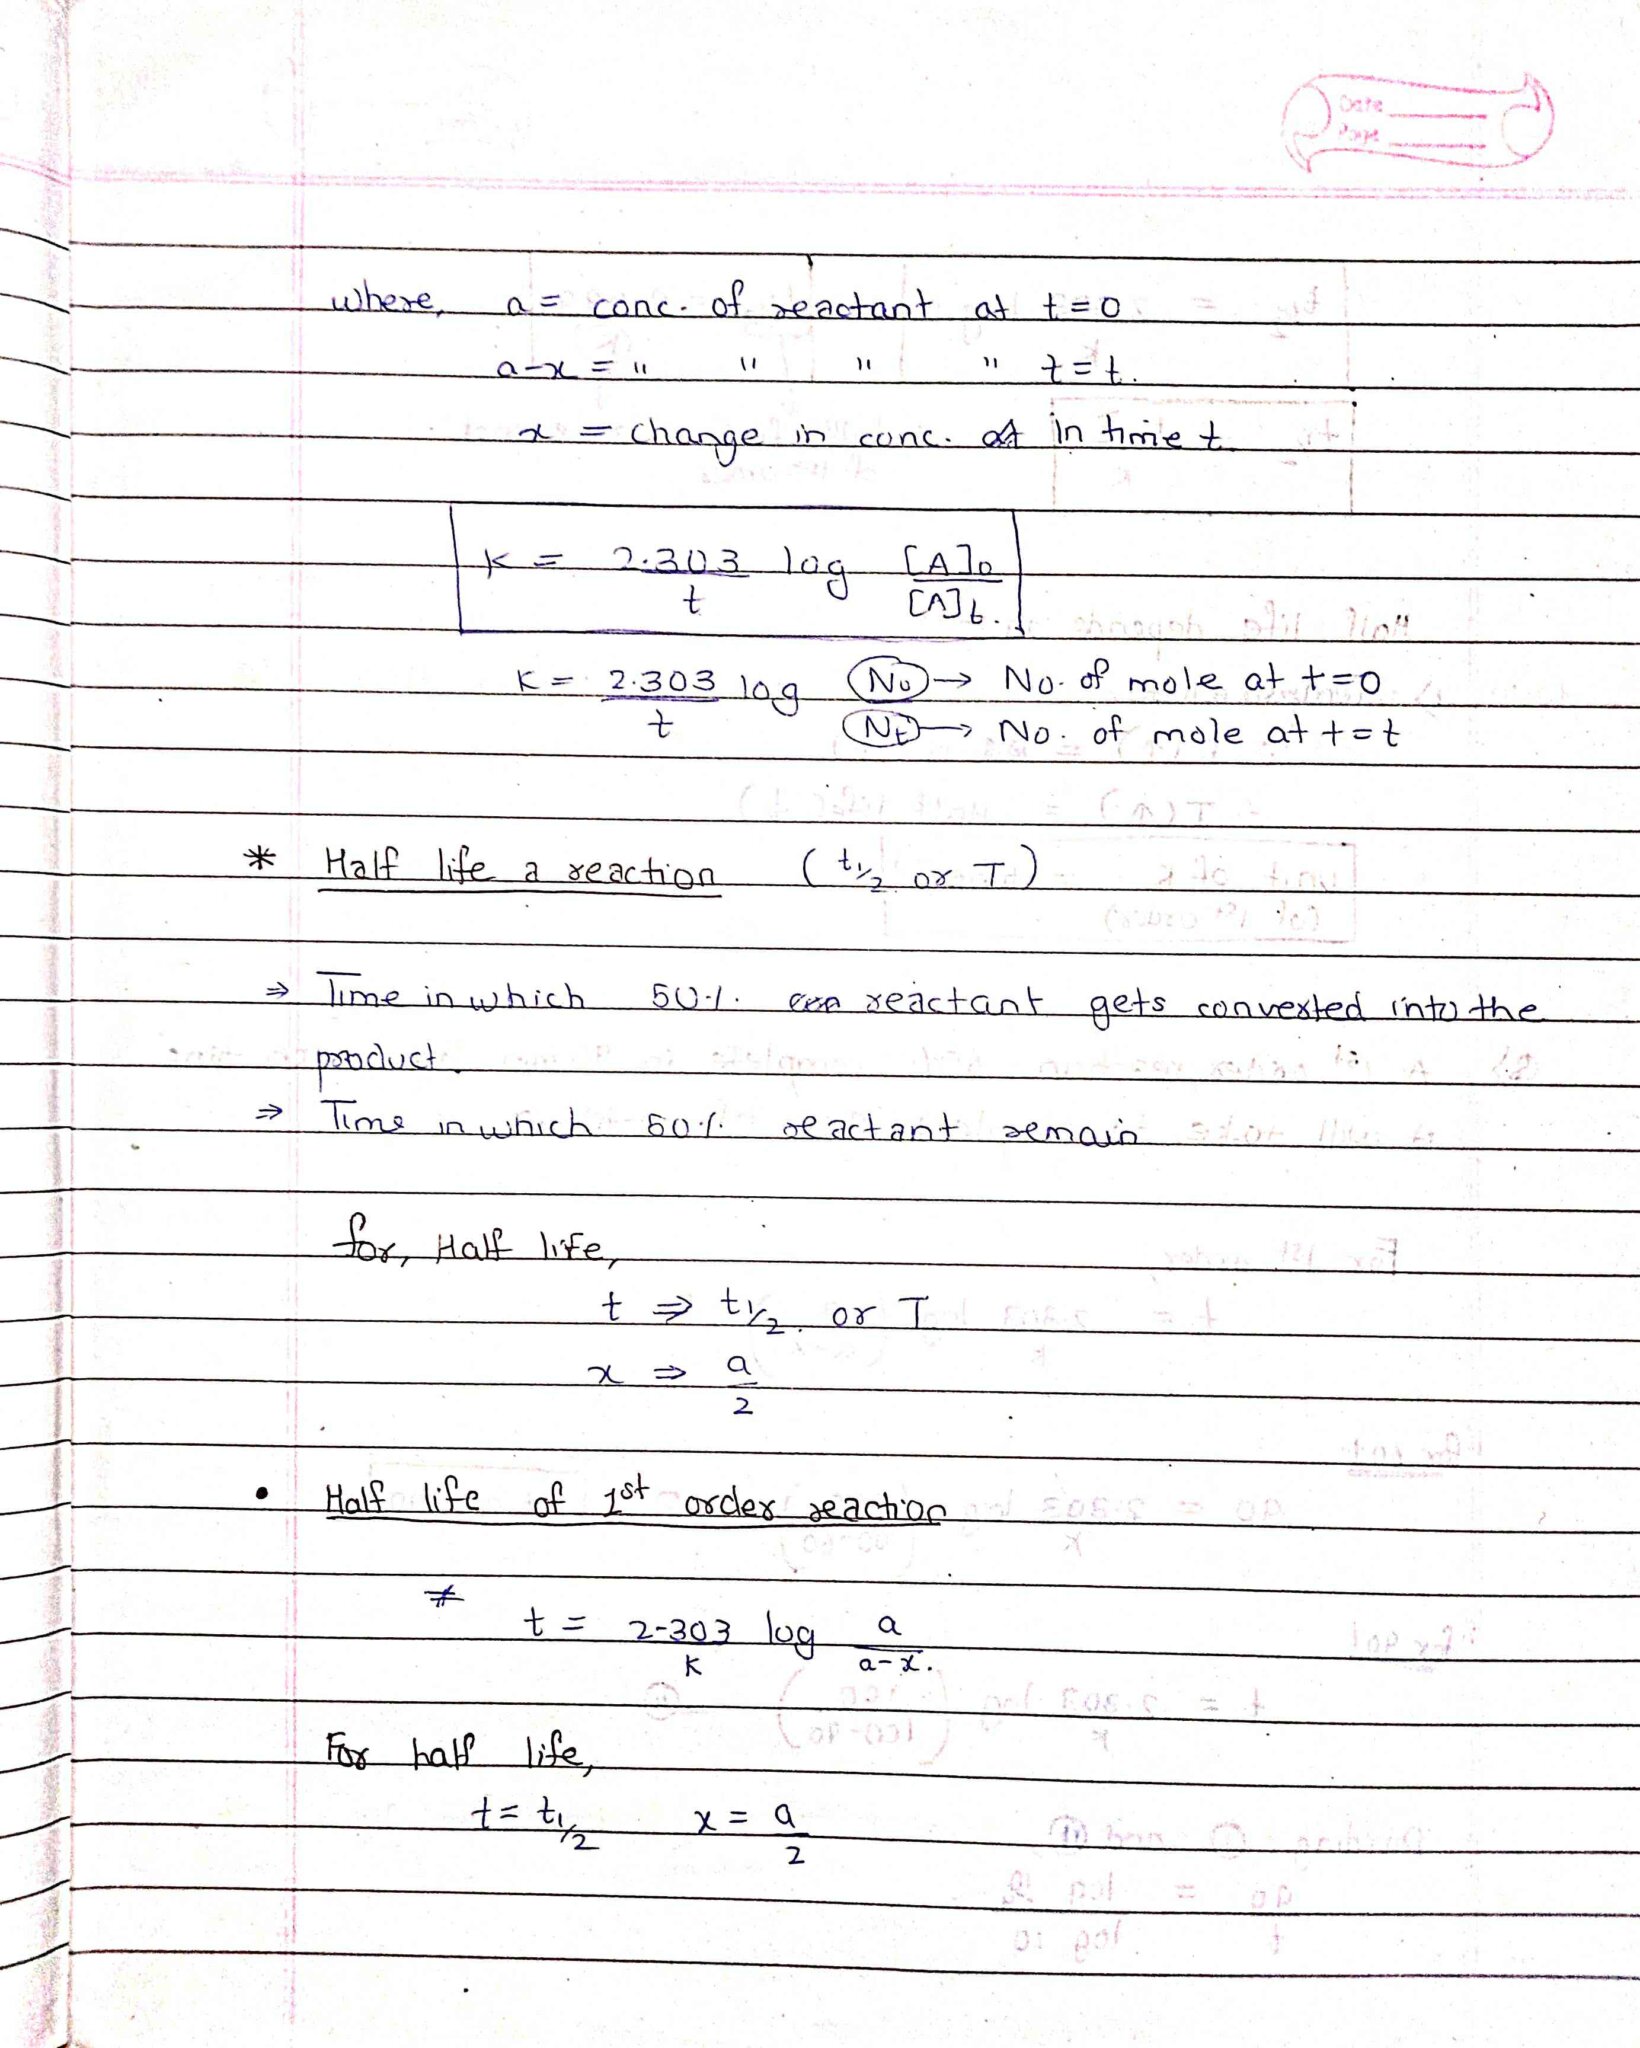 Date
Page
where, a = conc. of reactant at t=0
a-x = " " " " t=t.
x = change in conc. in time t
K = 2.303/t log [A]0/[A]t.
K = 2.303/t log N0 → No. of mole at t=0
Nt → No. of mole at t=t
* Half life a reaction (t1/2 or T)
⇒ Time in which 50% reactant gets converted into the
product.
⇒ Time in which 50% reactant remain
for, Half life,
t ⇒ t1/2 or T
x ⇒ a/2
• Half life of 1st order reaction
t = 2-303/K log a/a-x.
For half life,
t = t1/2 x = a/2